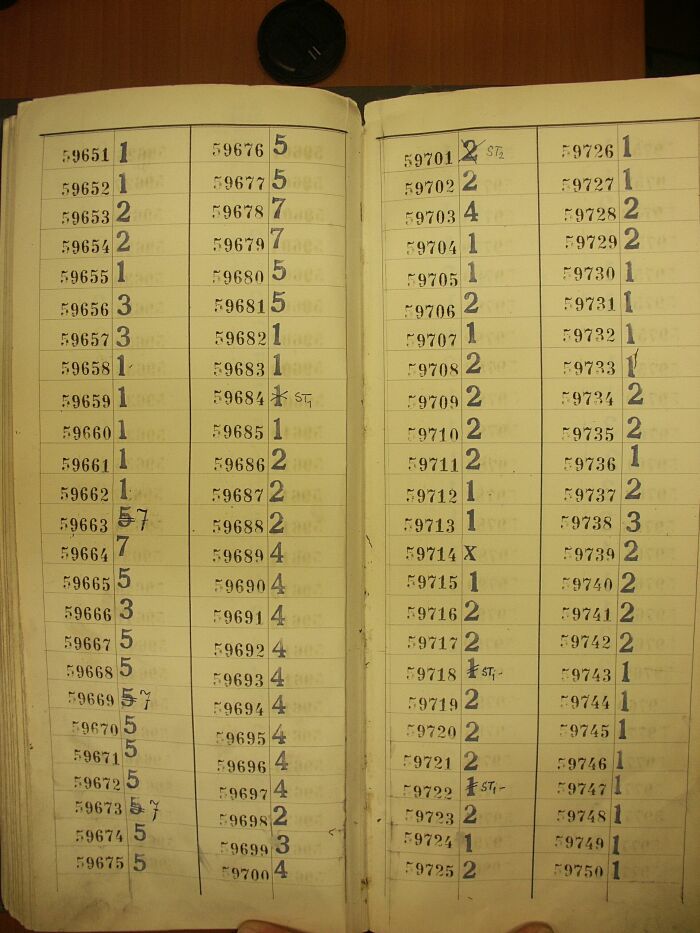 59651 1
59652 1
59653 2
59654 2
59655 1
59656 3
59657 3
59658 1
59659 1
59660 1
59661 1
59662 1
59663 5 7
59664 7
59665 5
59666 3
59667 5
59668 5
59669 5 7
59670 5
59671 5
59672 5
59673 5 7
59674 5
59675 5
59676 5
59677 5
59678 7
59679 7
59680 5
59681 5
59682 1
59683 1
59684 1 ST1
59685 1
59686 2
59687 2
59688 2
59689 4
59690 4
59691 4
59692 4
59693 4
59694 4
59695 4
59696 4
59697 4
59698 2
59699 3
59700 4
59701 2 ST2
59702 2
59703 4
59704 1
59705 1
59706 2
59707 1
59708 2
59709 2
59710 2
59711 2
59712 1
59713 1
59714 X
59715 1
59716 2
59717 2
59718 1 ST1-
59719 2
59720 2
59721 2
59722 1 ST1-
59723 2
59724 1
59725 2
59726 1
59727 1
59728 2
59729 2
59730 1
59731 1
59732 1
59733 1
59734 2
59735 2
59736 1
59737 2
59738 3
59739 2
59740 2
59741 2
59742 2
59743 1
59744 1
59745 1
59746 1
59747 1
59748 1
59749 1
59750 1